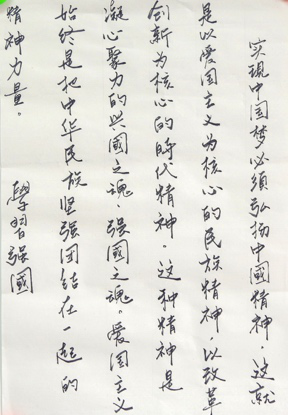 实现中国梦必須弘扬中國精神。这就
是以爱国主义为核心的民族精神,以改革
创新为核心的時代精神。这种精神是
凝心聚力的兴國之魂、强國之魂。爱国主义
始终是把中华民族坚强团结在一起的
精神力量。
學習强國